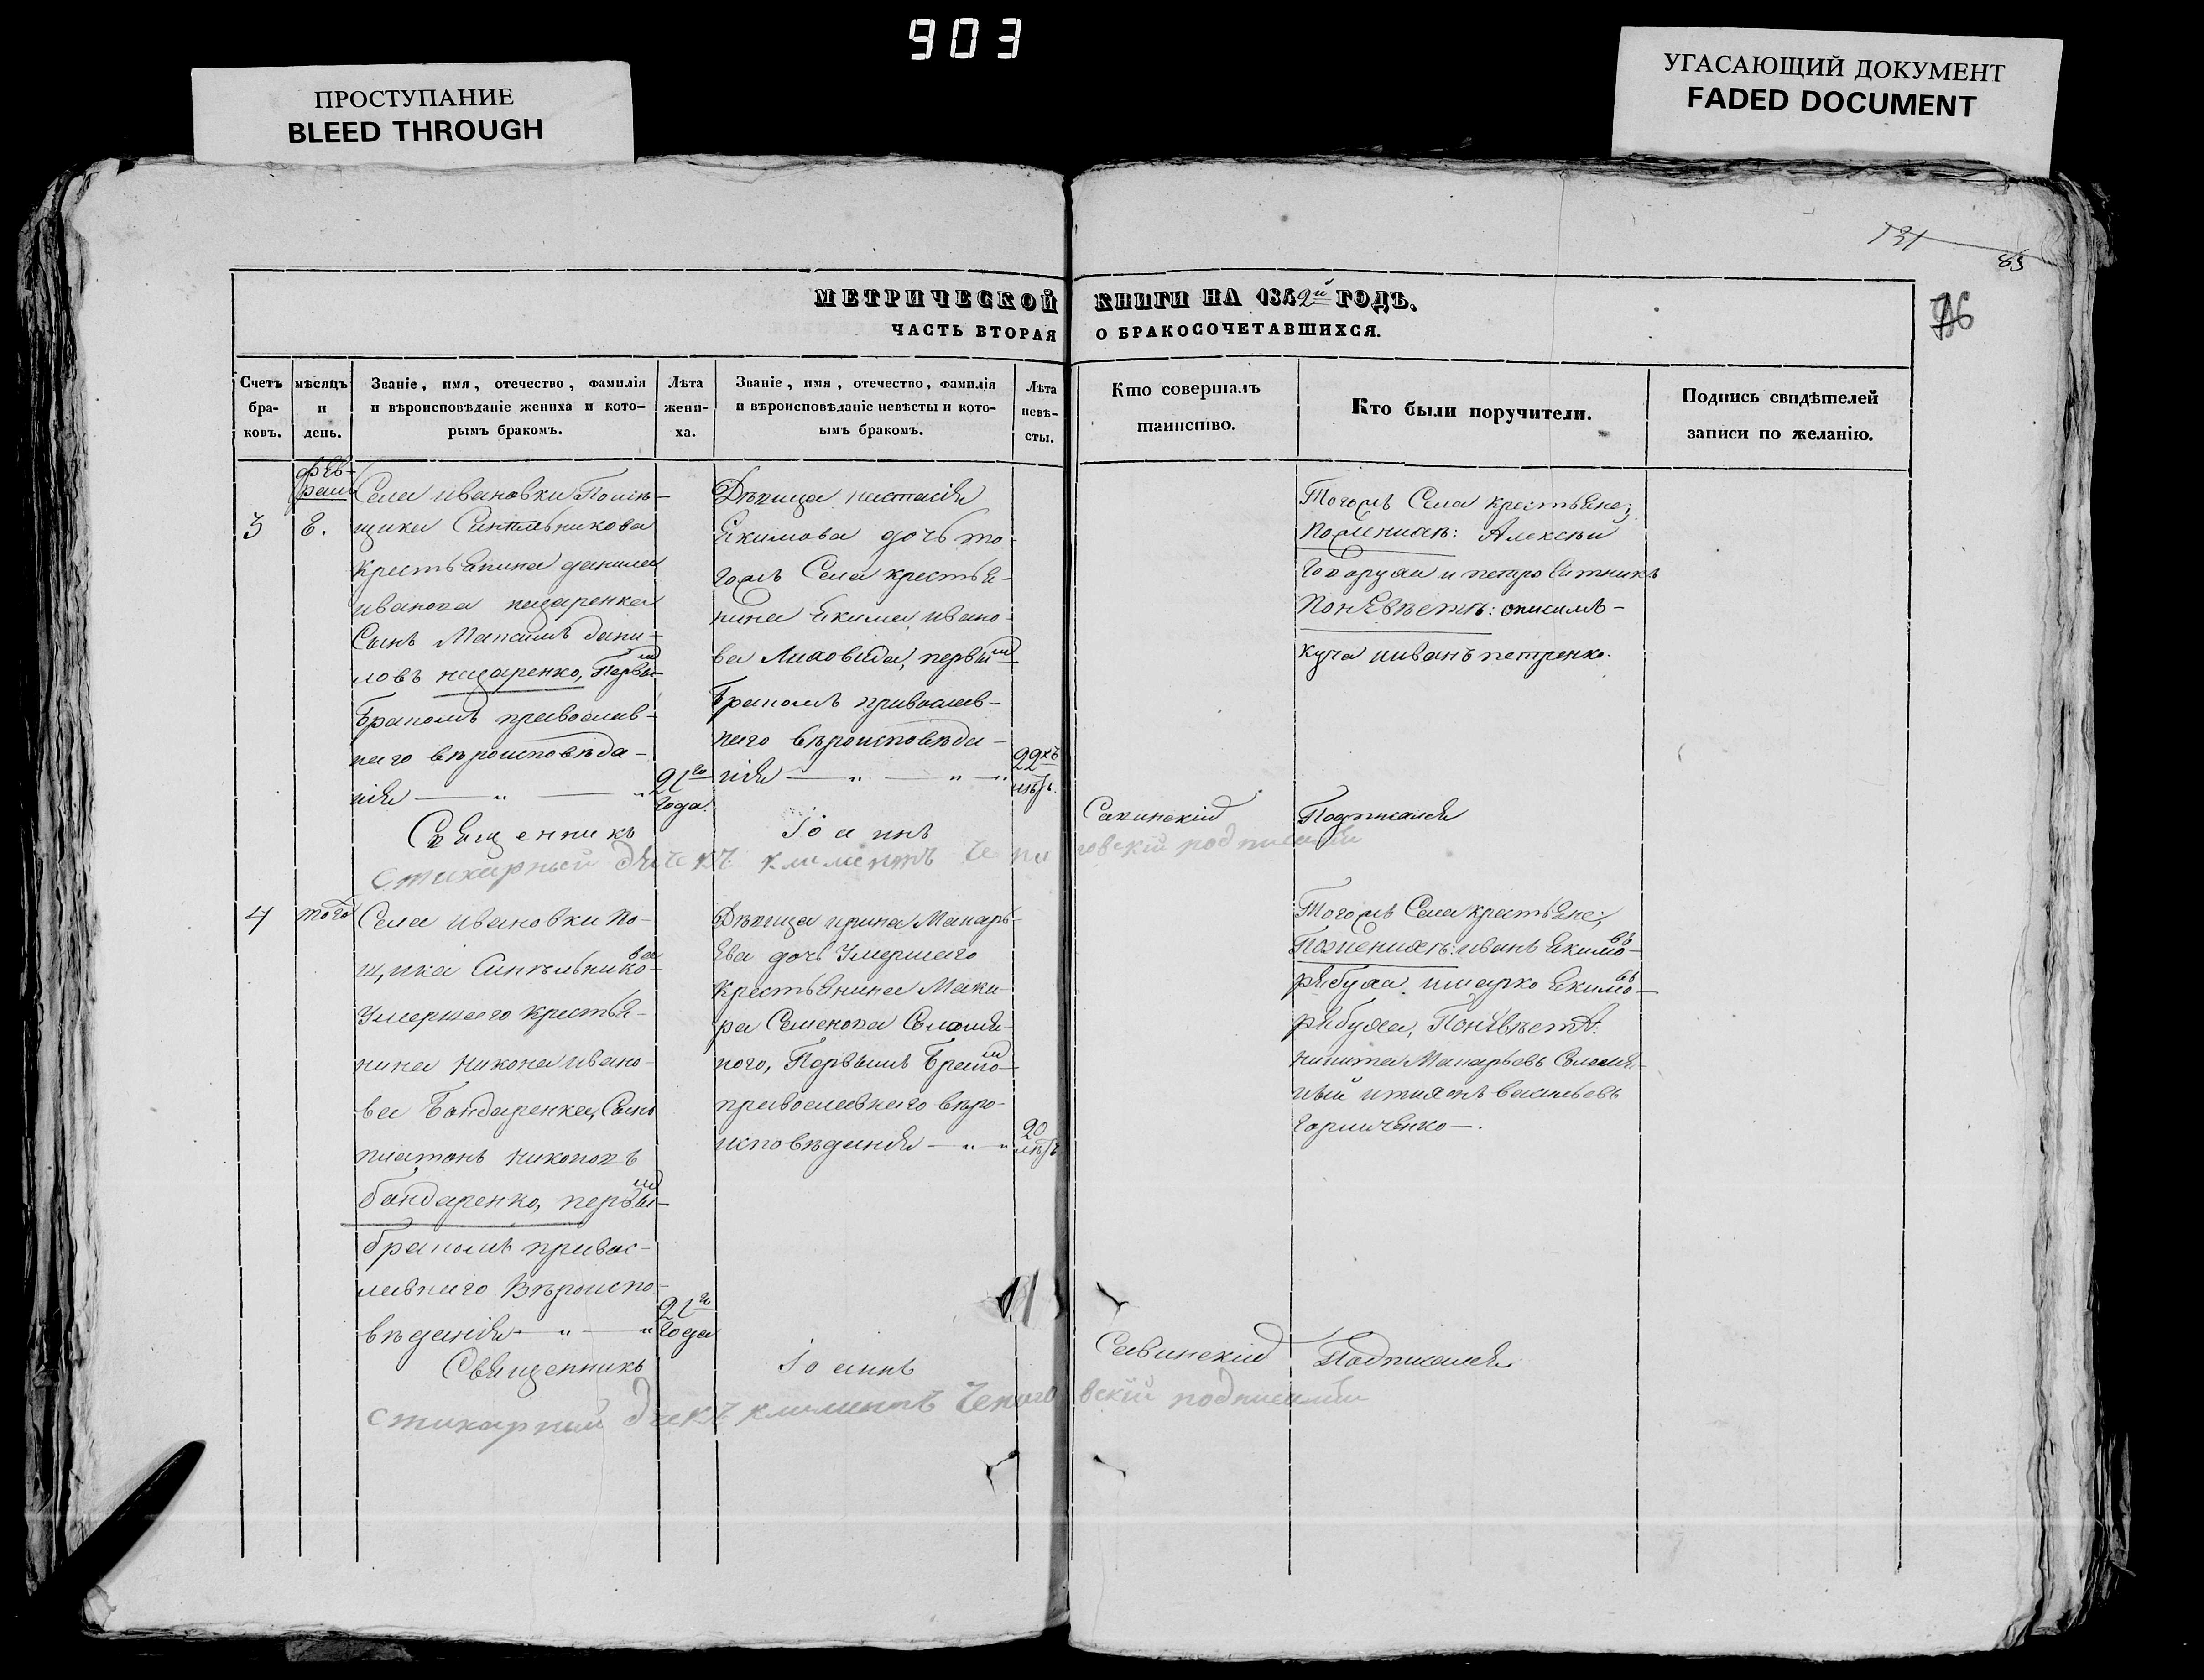 903
ПРОСТУПАНИЕ
BLEED THROUGH
УГАСАЮЩИЙ ДОКУМЕНТ
FADED DOCUMENT
131
85
МЕТРИЧЕСКОЙ КНИГИ НА 1842й ГОДЪ.
ЧАСТЬ ВТОРАЯ О БРАКОСОЧЕТАВШИХСЯ.
Счетъ бра-ковъ.
мѣсяцъ и день.
Званіе, имя, отечество, фамилія
и вѣроисповѣданіе жениха и кото-
рымъ бракомъ.
Лѣта жени-ха.
Званіе, имя, отечество, фамилія
и вѣроисповѣданіе невѣсты и кото-
ымъ бракомъ.
Лѣта невѣ-сты.
Кто совершалъ
таинство.
Кто были поручители.
Подпись свидѣтелей
записи по желанію.
3
фев-
раля
Е.
Села Ивановки Помѣ-
щика Синельникова
крестьянина данила
иванова назаренка
Сынъ Максимъ дани-
ловъ назаренко, Первы-м
бракомъ православ-
наго вѣроисповѣда-
нія — „ — „
21го
года
Дѣвица настасія
Екимова дочь то-
гожъ Села крестья-
нина Екима ивано-
ва первым
бракомъ православ-
наго вѣроисповѣда-
нія — „ — „ — „
22хъ
лѣтъ.
Тогожъ Села крестьяне;
По женихѣ: Алексѣй
и петро
По невѣстѣ: онисимъ
куча и иванъ петренко.
Священникъ Іоаннъ Савинскій Подписался
Стихарный дьячекъ климентъ подписался
4
того
Села Ивановки по-
щика Синельнико-ва
Умершаго крестья-
нина никона ивано-
ва Бондаренка, Сынъ
платонъ никоновъ
бондаренко, первы-м
бракомъ правос-
лавнаго вѣроиспо-
вѣданія — „ — „
21го
года
Дѣвица ирина Макарь-
ева дочь Умершаго
крестьянина Мака-
ра Семенова Соломя-
ного, Первымъ брако-м
православнаго вѣро-
исповѣданія — „ „
20
лѣтъ
Тогожъ Села крестьяне;
По женихѣ: иванъ Екимо-въ
рябуха и марко Екимо-въ
рябуха, По невѣстѣ:
никита Макарьевъ Соломя-
ный и васильевъ
Священникъ Іоаннъ Савинскій Подписался
Стихарный дьячекъ климентъ подписался